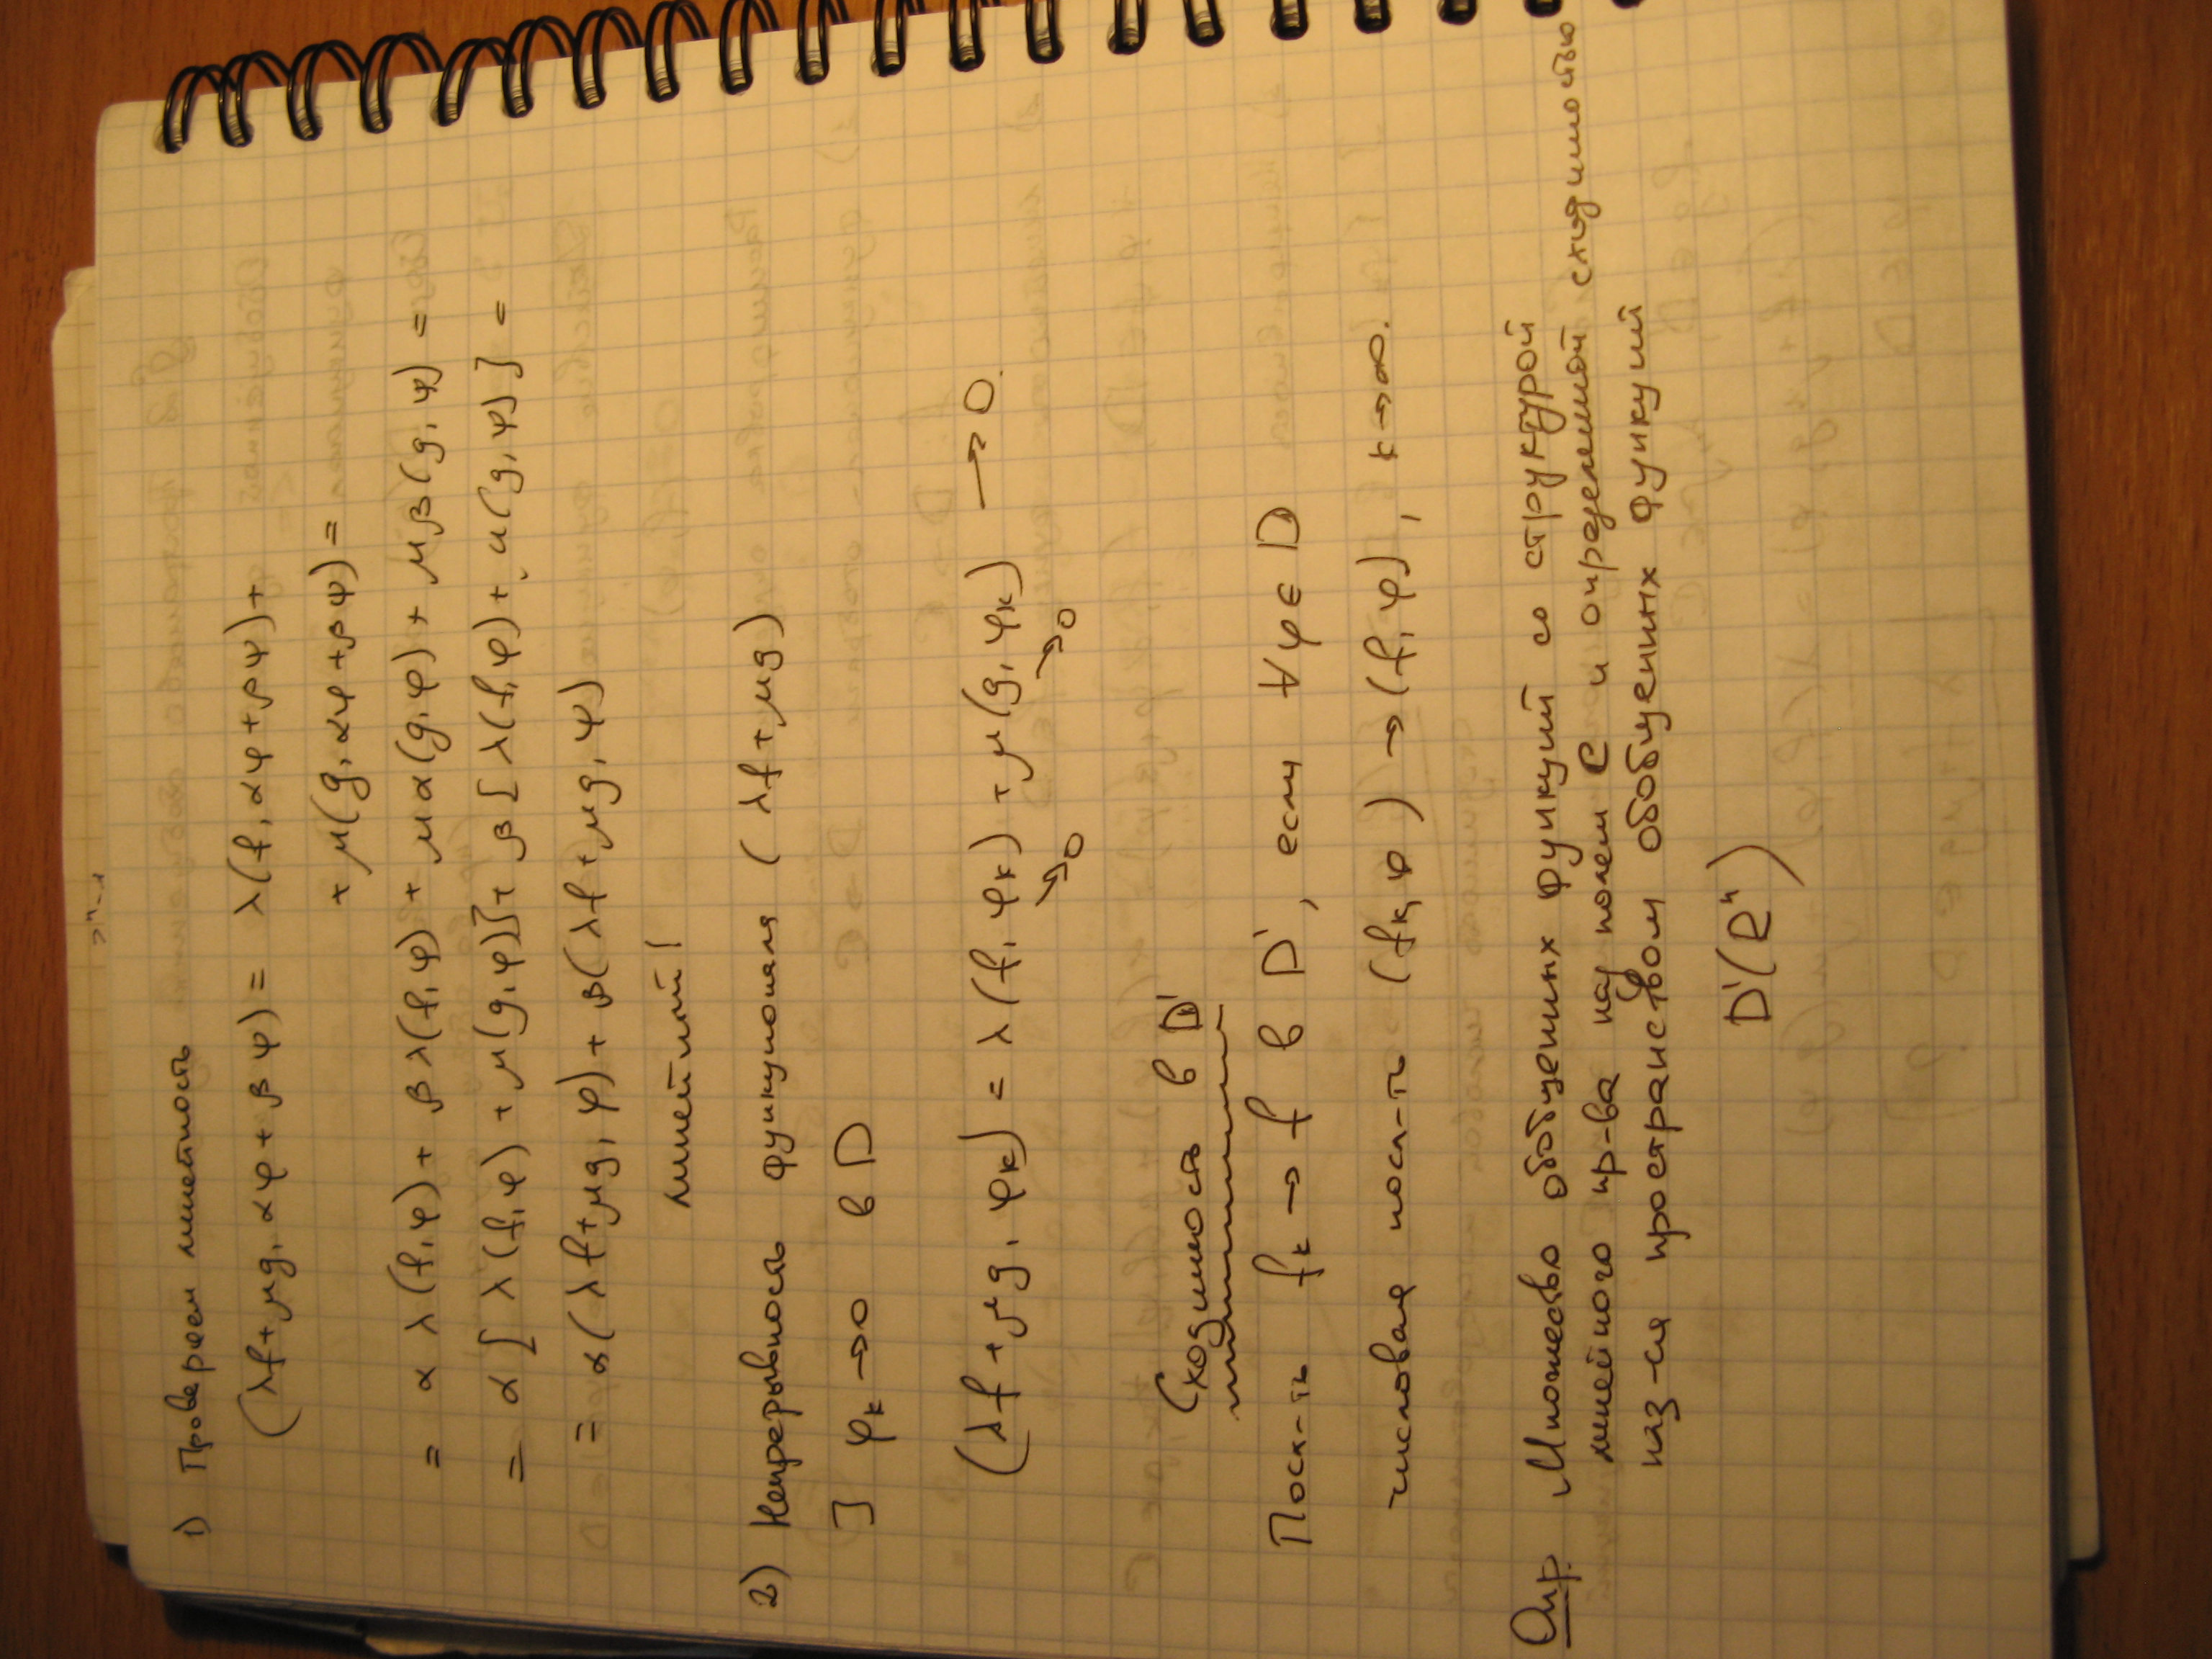 1) Проверяем линейность
(λf+μg, αφ+βψ) = λ(f, αφ+βψ)+
+ μ(g, αφ+βψ) =
= αλ(f,φ)+ βλ(f,φ)+ μα(g,φ)+ μβ(g,ψ) =
= α[λ(f,φ)+μ(g,φ)]+ β[λ(f,φ)+μ(g,ψ)] =
= α(λf+μg, φ)+ β(λf+μg, ψ)
линейный!
2) Непрерывность функционала (λf+μg)
] φk→0 в D
(λf+μg, φk) = λ(f, φk) + μ(g, φk) → 0.
→0 →0
Сходимость в D'
Посл-ть fk → f в D', если ∀φ∈D
числовая посл-ть (fk, φ) → (f, φ), k→∞.
Опр. Множество обобщенных функций со структурой
линейного пр-ва над полем C и определенной сходимостью
наз-ся пространством обобщенных функций
D'(Rⁿ)